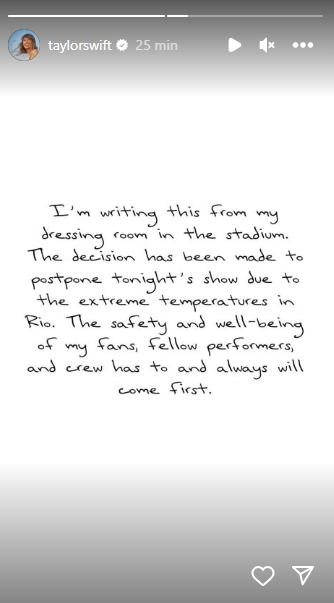 taylorswift 25 min
I'm writing this from my
dressing room in the stadium.
The decision has been made to
postpone tonight's show due to
the extreme temperatures in
Rio. The safety and well-being
of my fans, fellow performers,
and crew has to and always will
come first.